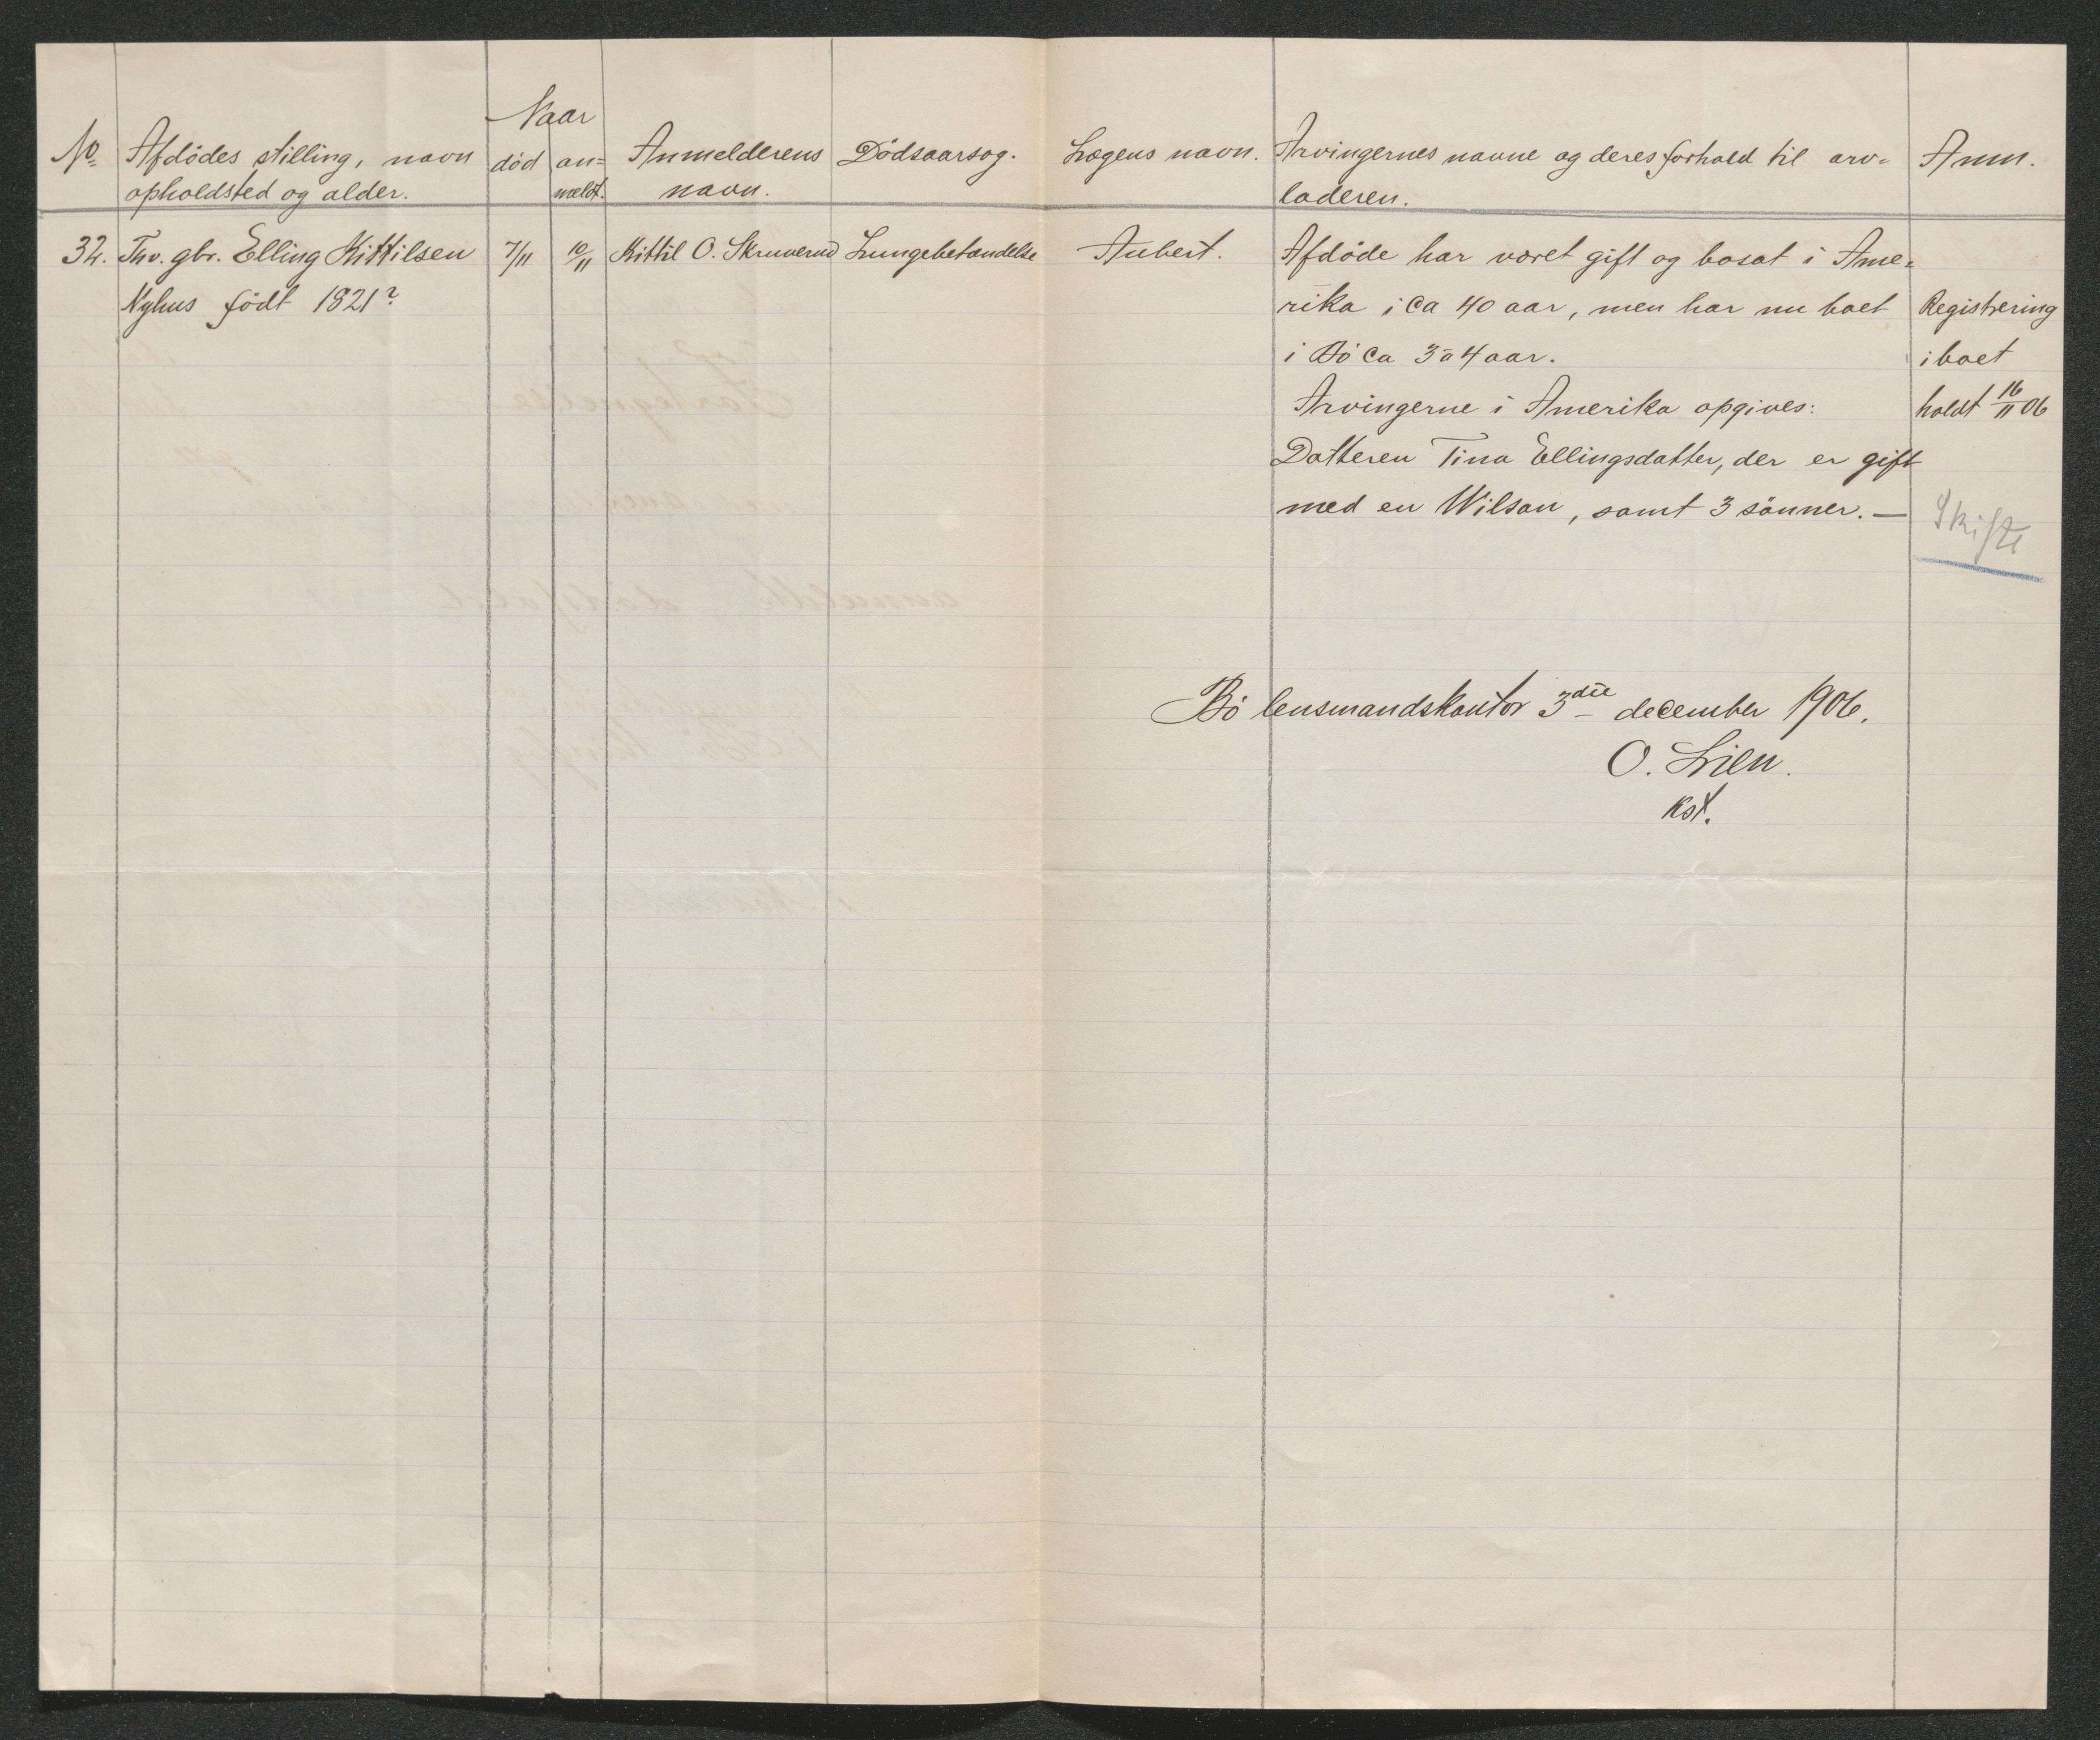 Naar
No Afdödes stilling, navn död an= Anmelderens Dödsaarsag. Lægens navn. Arvingernes navne og deres forhold til arv= Anm.
opholdsted og alder. mældt. navn. laderen.
32. Thv. gbr. Elling Kittilsen 7/11 10/11 Kittil O. Skruverud Lungebetændelse Aubert. Afdöde har været gift og bosat i Ame=
Nyhus født 1821? rika i ca 40 aar, men har nu boet Registrering
i Bö ca 3 a 4 aar. i boet
Arvingerne i Amerika opgives: holdt 16/11 06
Datteren Tina Ellingsdatter, der er gift
med en Wilson, samt 3 sönner. — Skifte
Bö lensmandskontor 3die december 1906.
O. Lien.
kst.